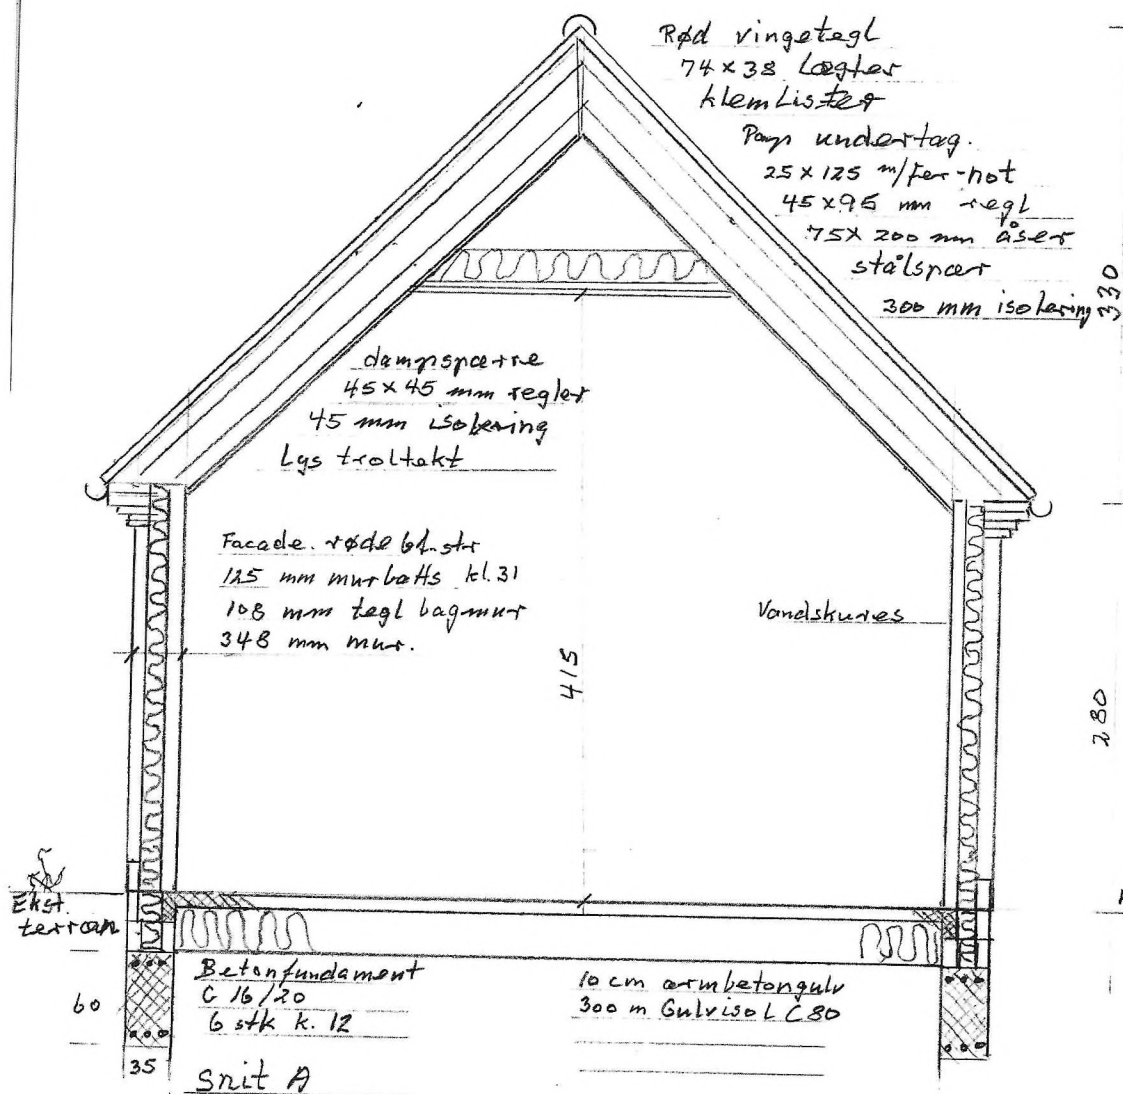 Rød vingetegl
74 x 38 Lægter
klemLister
Pap undertag.
25 x 125 m/fer-not
45 x 95 mm regl
75 x 200 mm åser
stålspær
300 mm isolering
330
dampspærre
45 x 45 mm regler
45 mm isolering
Lys troltekt
Facade. røde bl. str
125 mm murbatts kl. 31
108 mm tegl bagmur
348 mm mur.
Vandskures
415
280
Ekst.
terræn
Betonfundament
C 16/20
6 stk k. 12
10 cm armbetongulv
300 m Gulvisol C 80
60
35
Snit A